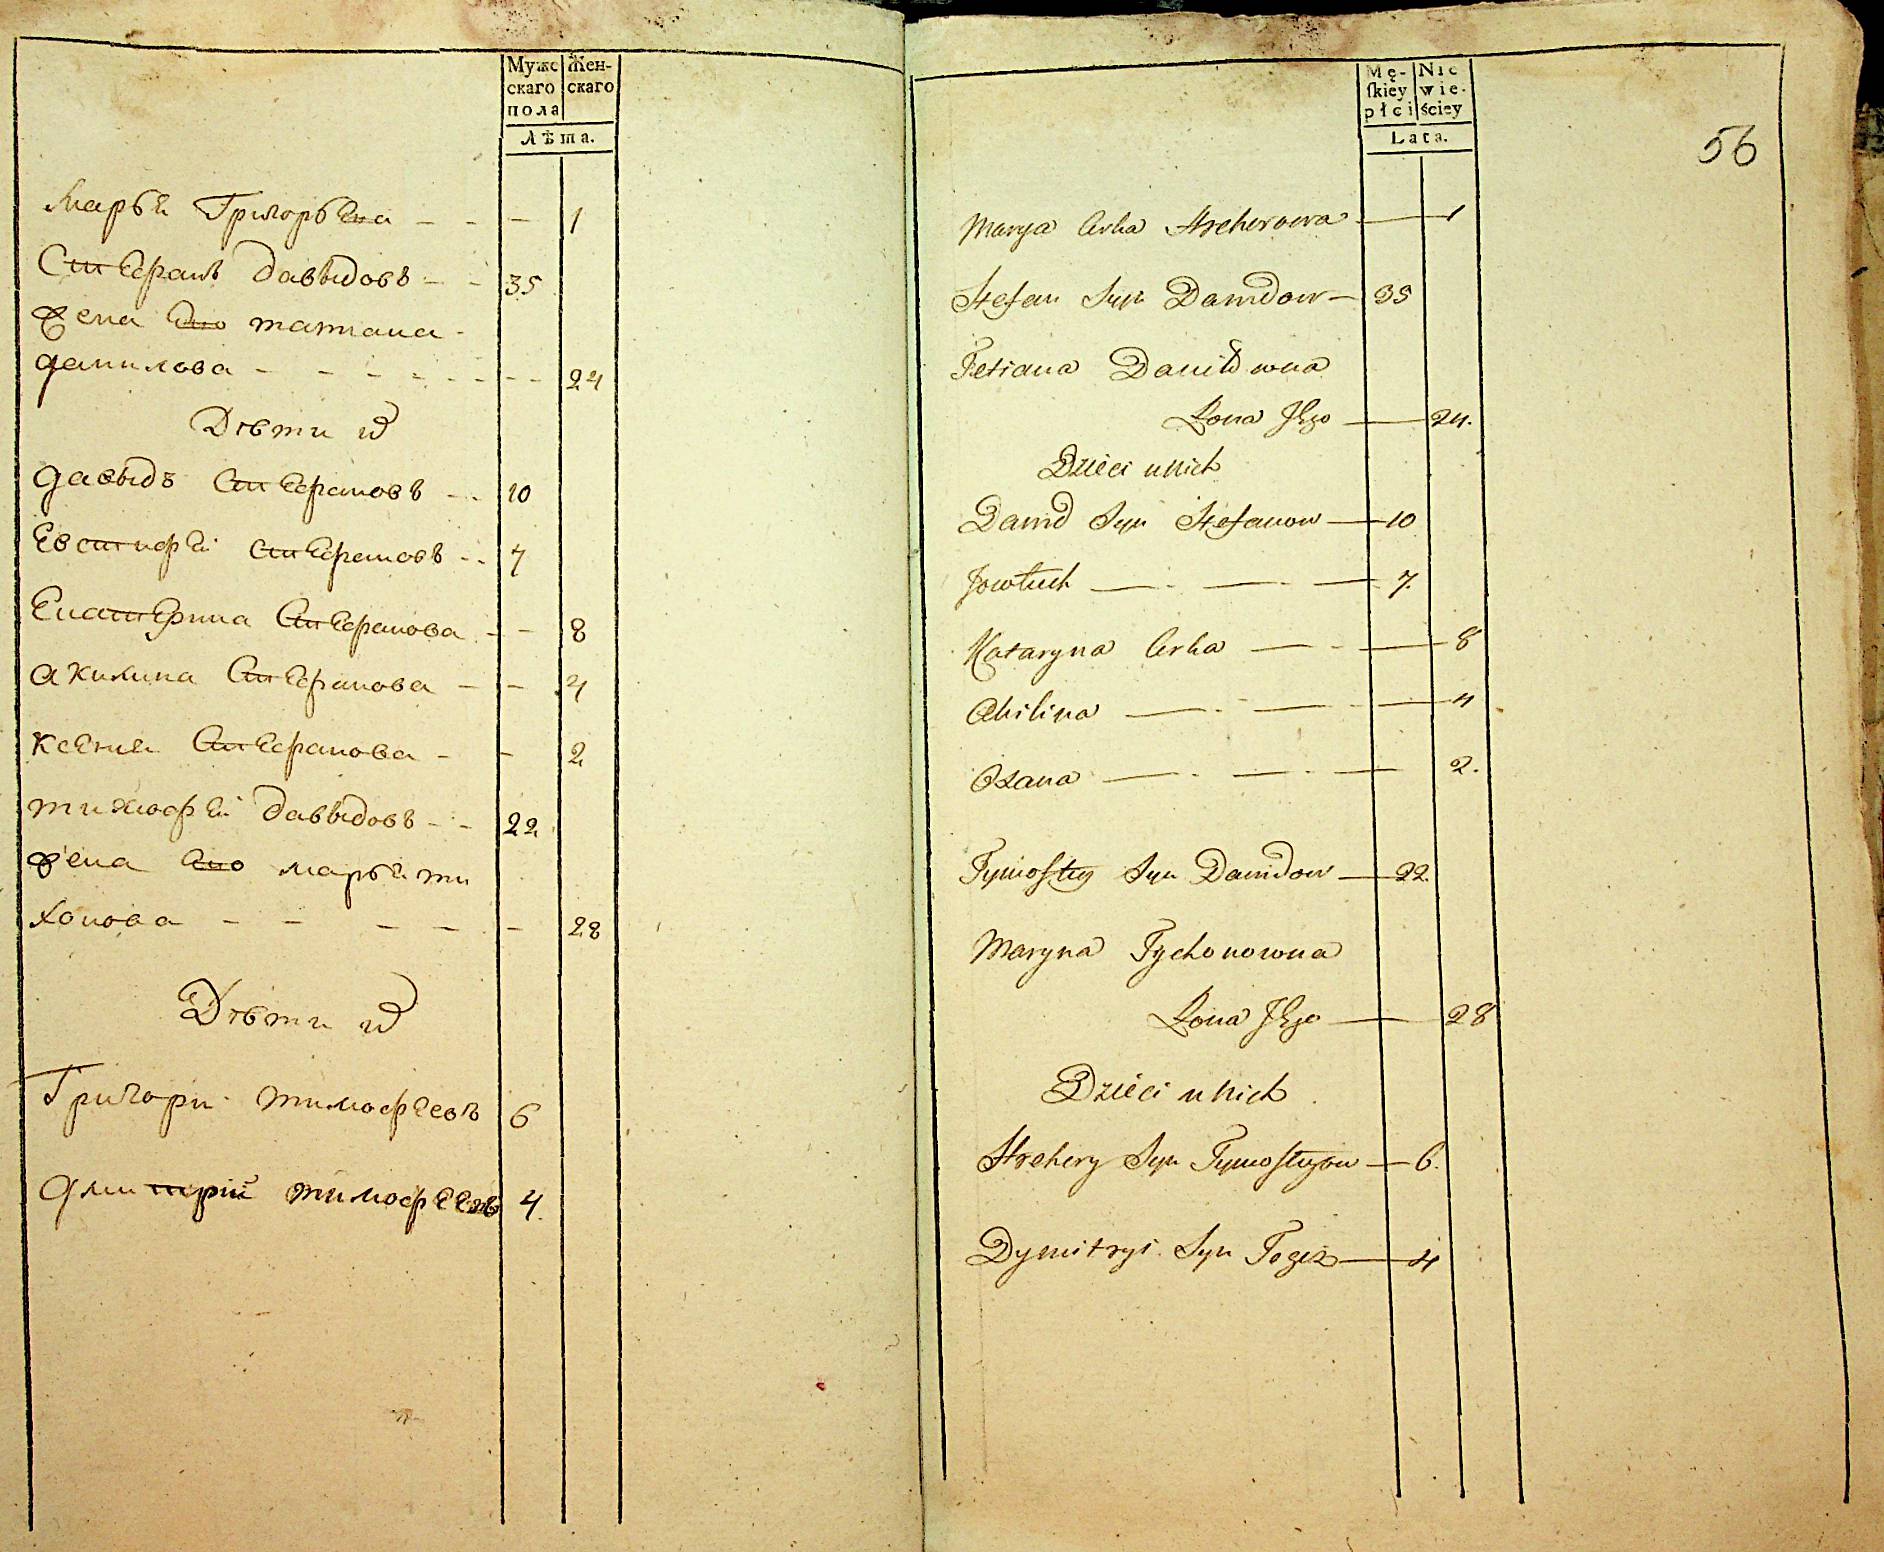 Мужс
скаго
пола
Жен-
скаго
Лѣта.
Марья Григорьева - - - 1
Стефанъ Давыдовъ - - 35
жена его татиана -
данилова - - - - - - - - 24
Дѣти их
давыдъ Стефановъ - - 10
Евстифей Стефановъ - - 7
Екатерина Стефанова - - 8
акилина Стефанова - - 4
ксения Стефанова - - 2
тимофей Давыдовъ - - 22
жена его марья ти
хонова - - - - - 28
Дѣти их
Григори тимофеевъ 6
дмитрий тимофеевъ 4
Mę-
ſkiey
płci
Nie
wie-
ściey
Lata.
56
Marya Corka Hrehorowa — 1
Stefan Syn Dawidow — 35
Tetiana Daniłowna
Żona Jego — 24.
Dzieci u nich
Dawid Syn Stefanow — 10
Jowtuch — — — 7.
Kataryna Corka — - — 8
Akilina — - — - — 4
Oxana — - — - — 2.
Tymofiey Syn Dawidow — 22.
Maryna Tychonowna
Żona Jego — 28
Dzieci u nich
Hrehory Syn Tymofiejow — 6.
Dymitryi Syn Tegoż — 4